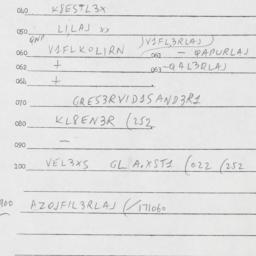 040 K8ESTL3X
050 LILAJ xx
GNP
060 V1FLKOL1RN )V1FL3RLAJ)
062 - QADURLAJ
+ 063 -QAL3RLAJ
+
070 GRES3RVID1SAND3R1
080 KL8EN3R (252
090 -
100 VEL3XS GL A.XST1 (022 (252
AZOJFIL3RLAJ (/171060